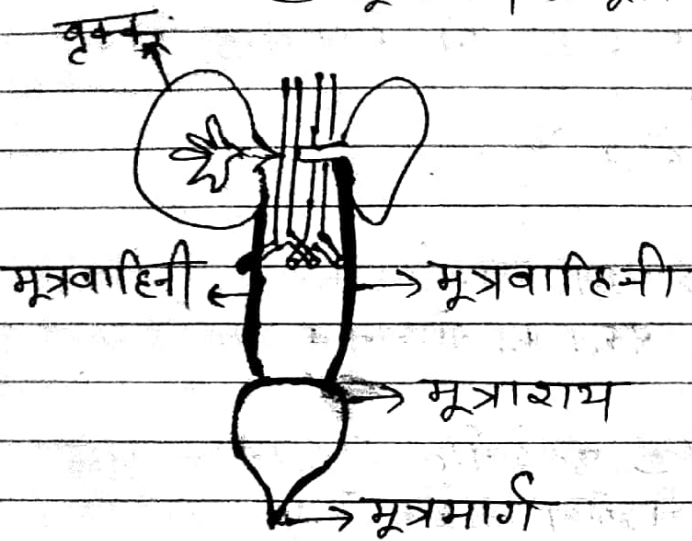 वृक्क
मूत्रवाहिनी
मूत्रवाहिनी
मूत्राशय
मूत्रमार्ग